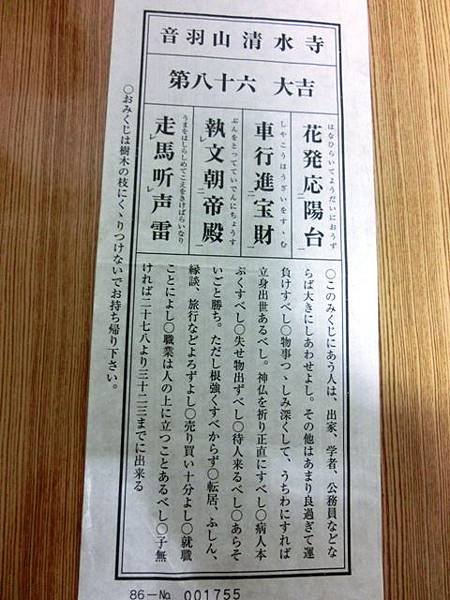 音羽山清水寺
第八十六 大吉
はなひらいてようだいにおうず
花発応陽台
しやこうはうざいをすゝむ
車行進宝財
ぶんをとつてていでんにちょうす
執文朝帝殿
うまをはしらしめてこえをきけばらいなり
走馬听声雷
〇このみくじにあう人は、出家、学者、公務員などな
らば大きにしあわせよし。その他はあまり良過ぎて運
負けすべし〇物事つゝしみ深くして、うちわにすれば
立身出世あるべし。神仏を祈り正直にすべし〇病人本
ぷくすべし〇失せ物出ずべし〇待人来るべし〇あらそ
いごと勝ち。ただし根強くすべからず〇転居、ふしん、
縁談、旅行などよろずよし〇売り買い十分よし〇就職
ことによし〇職業は人の上に立つことあるべし〇子無
ければ二十七八より三十二三までに出来る
〇おみくじは樹木の枝にくゝりつけないでお持ち帰り下さい。
86-No. 001755